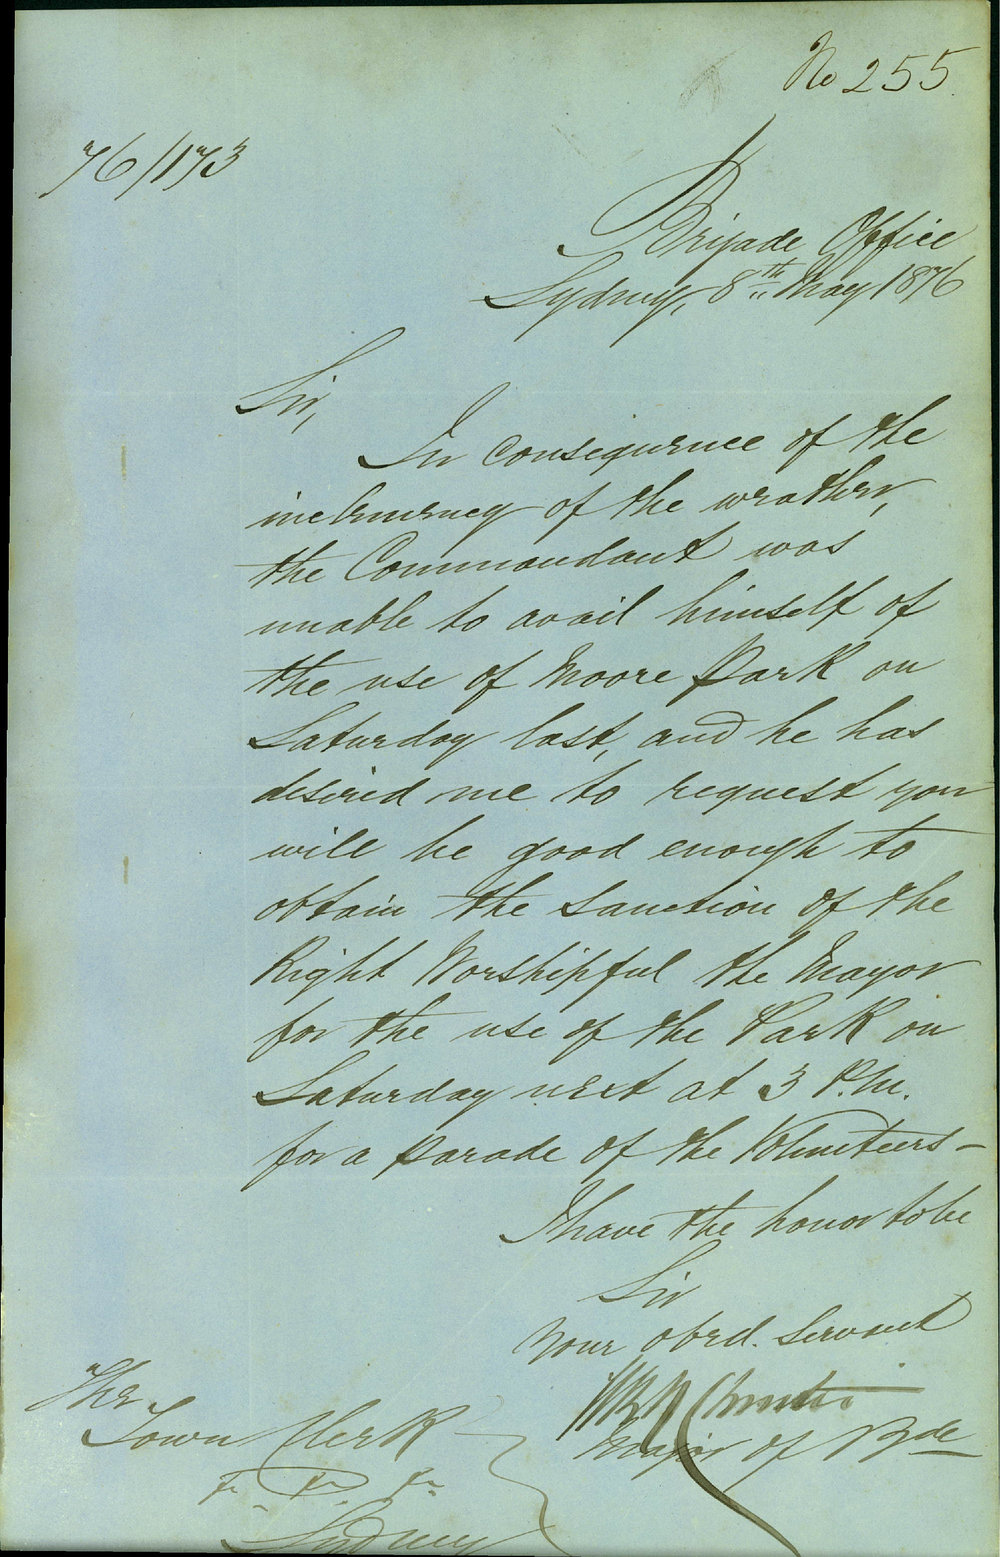 No 255.
76/173
Brigade Office
Sydney, 8th May 1876
Sir,
In consequence of the
inclemency of the weather,
the Commandant was
unable to avail himself of
the use of Moore Park on
Saturday last, and he has
desired me to request you
will be good enough to
obtain the sanction of the
Right Worshipful the Mayor
for the use of the Park on
Saturday next at 3 P.M.
for a parade of the Volunteers –
I have the honor to be
Sir
Your obed. Servant
Major of Bde
The
Town Clerk
&c &c &c
Sydney